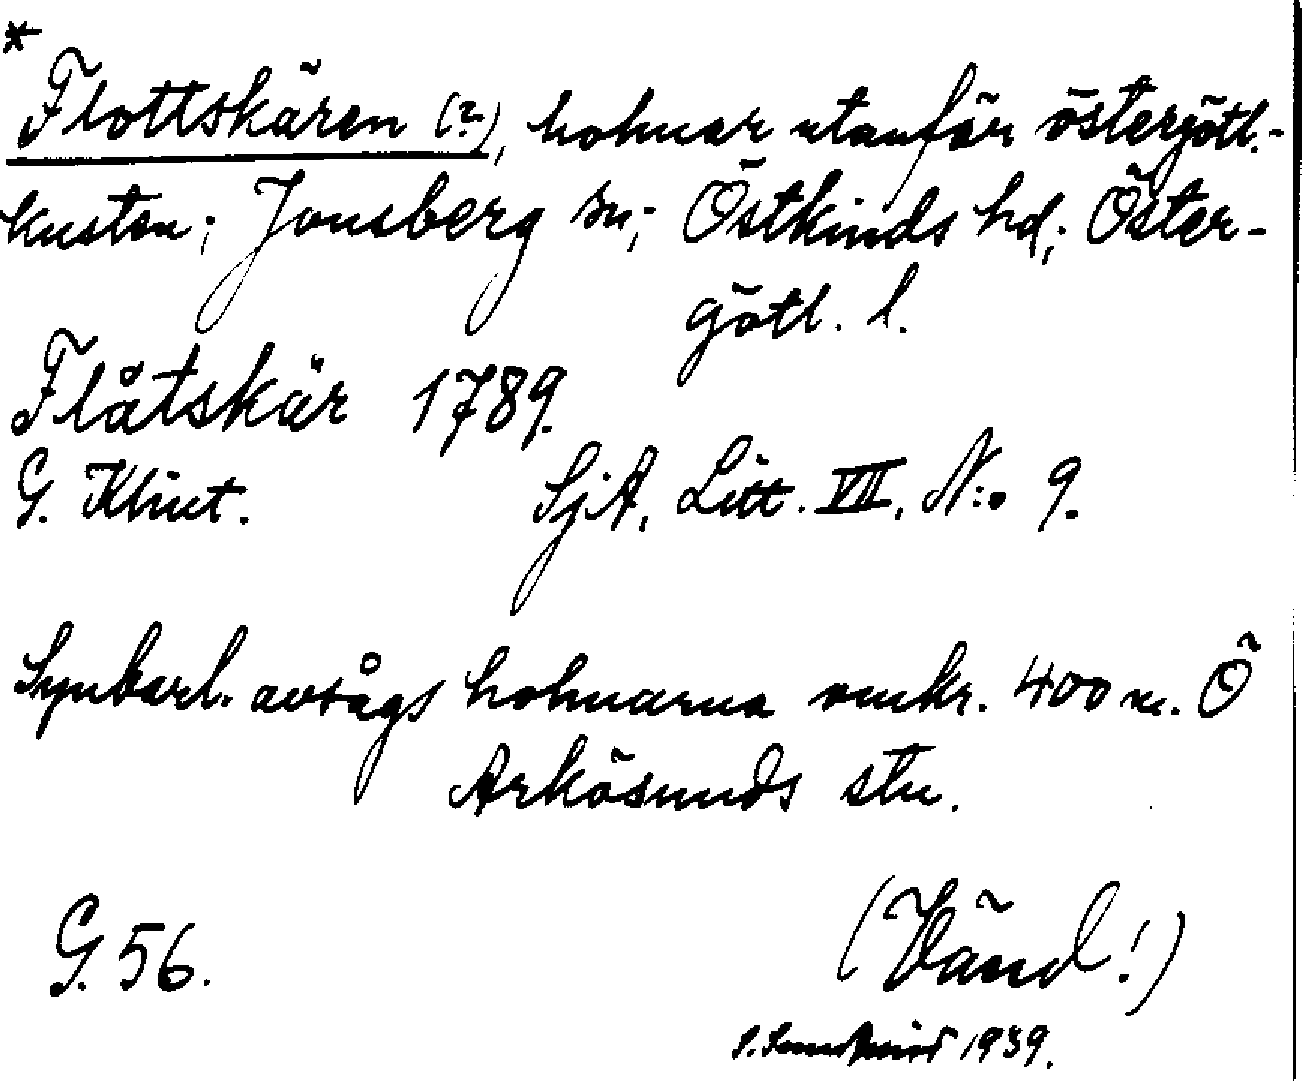 *
Flottskären (?), holmar utanför östergötl.-
kusten; Jonsberg sn; Östkinds hd; Öster-
götl. l.
Flåtskär 1789.
G. Klint. SjA, Litt. VII, N:o 9.
Synbarl. avsågs holmarna omkr. 400 m. Ö
Arkösunds stn.
G. 56. (Vänd!)
1939.